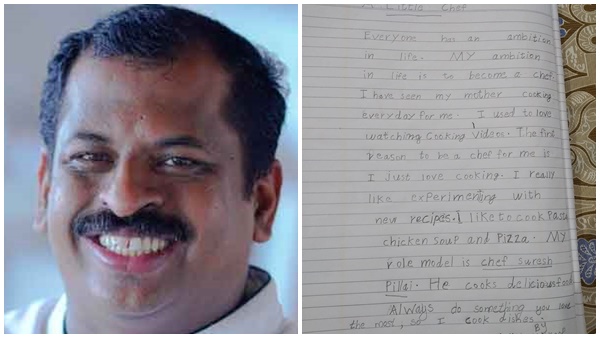 Little Chef
Everyone has an ambition
in life. MY ambition
in life is to become a chef
I have seen my mother cooking
everyday for me. I used to love
watching Cooking videos. The first
reason to be a chef for me is
I Just love cooking. I really
like experimenting with
new recipes. I like to cook Pasta
chicken soup and Pizza. MY
role model is chef surash
Pillai. He cooks delicious food
Always do something you love
the most, so I cook dishes.
By